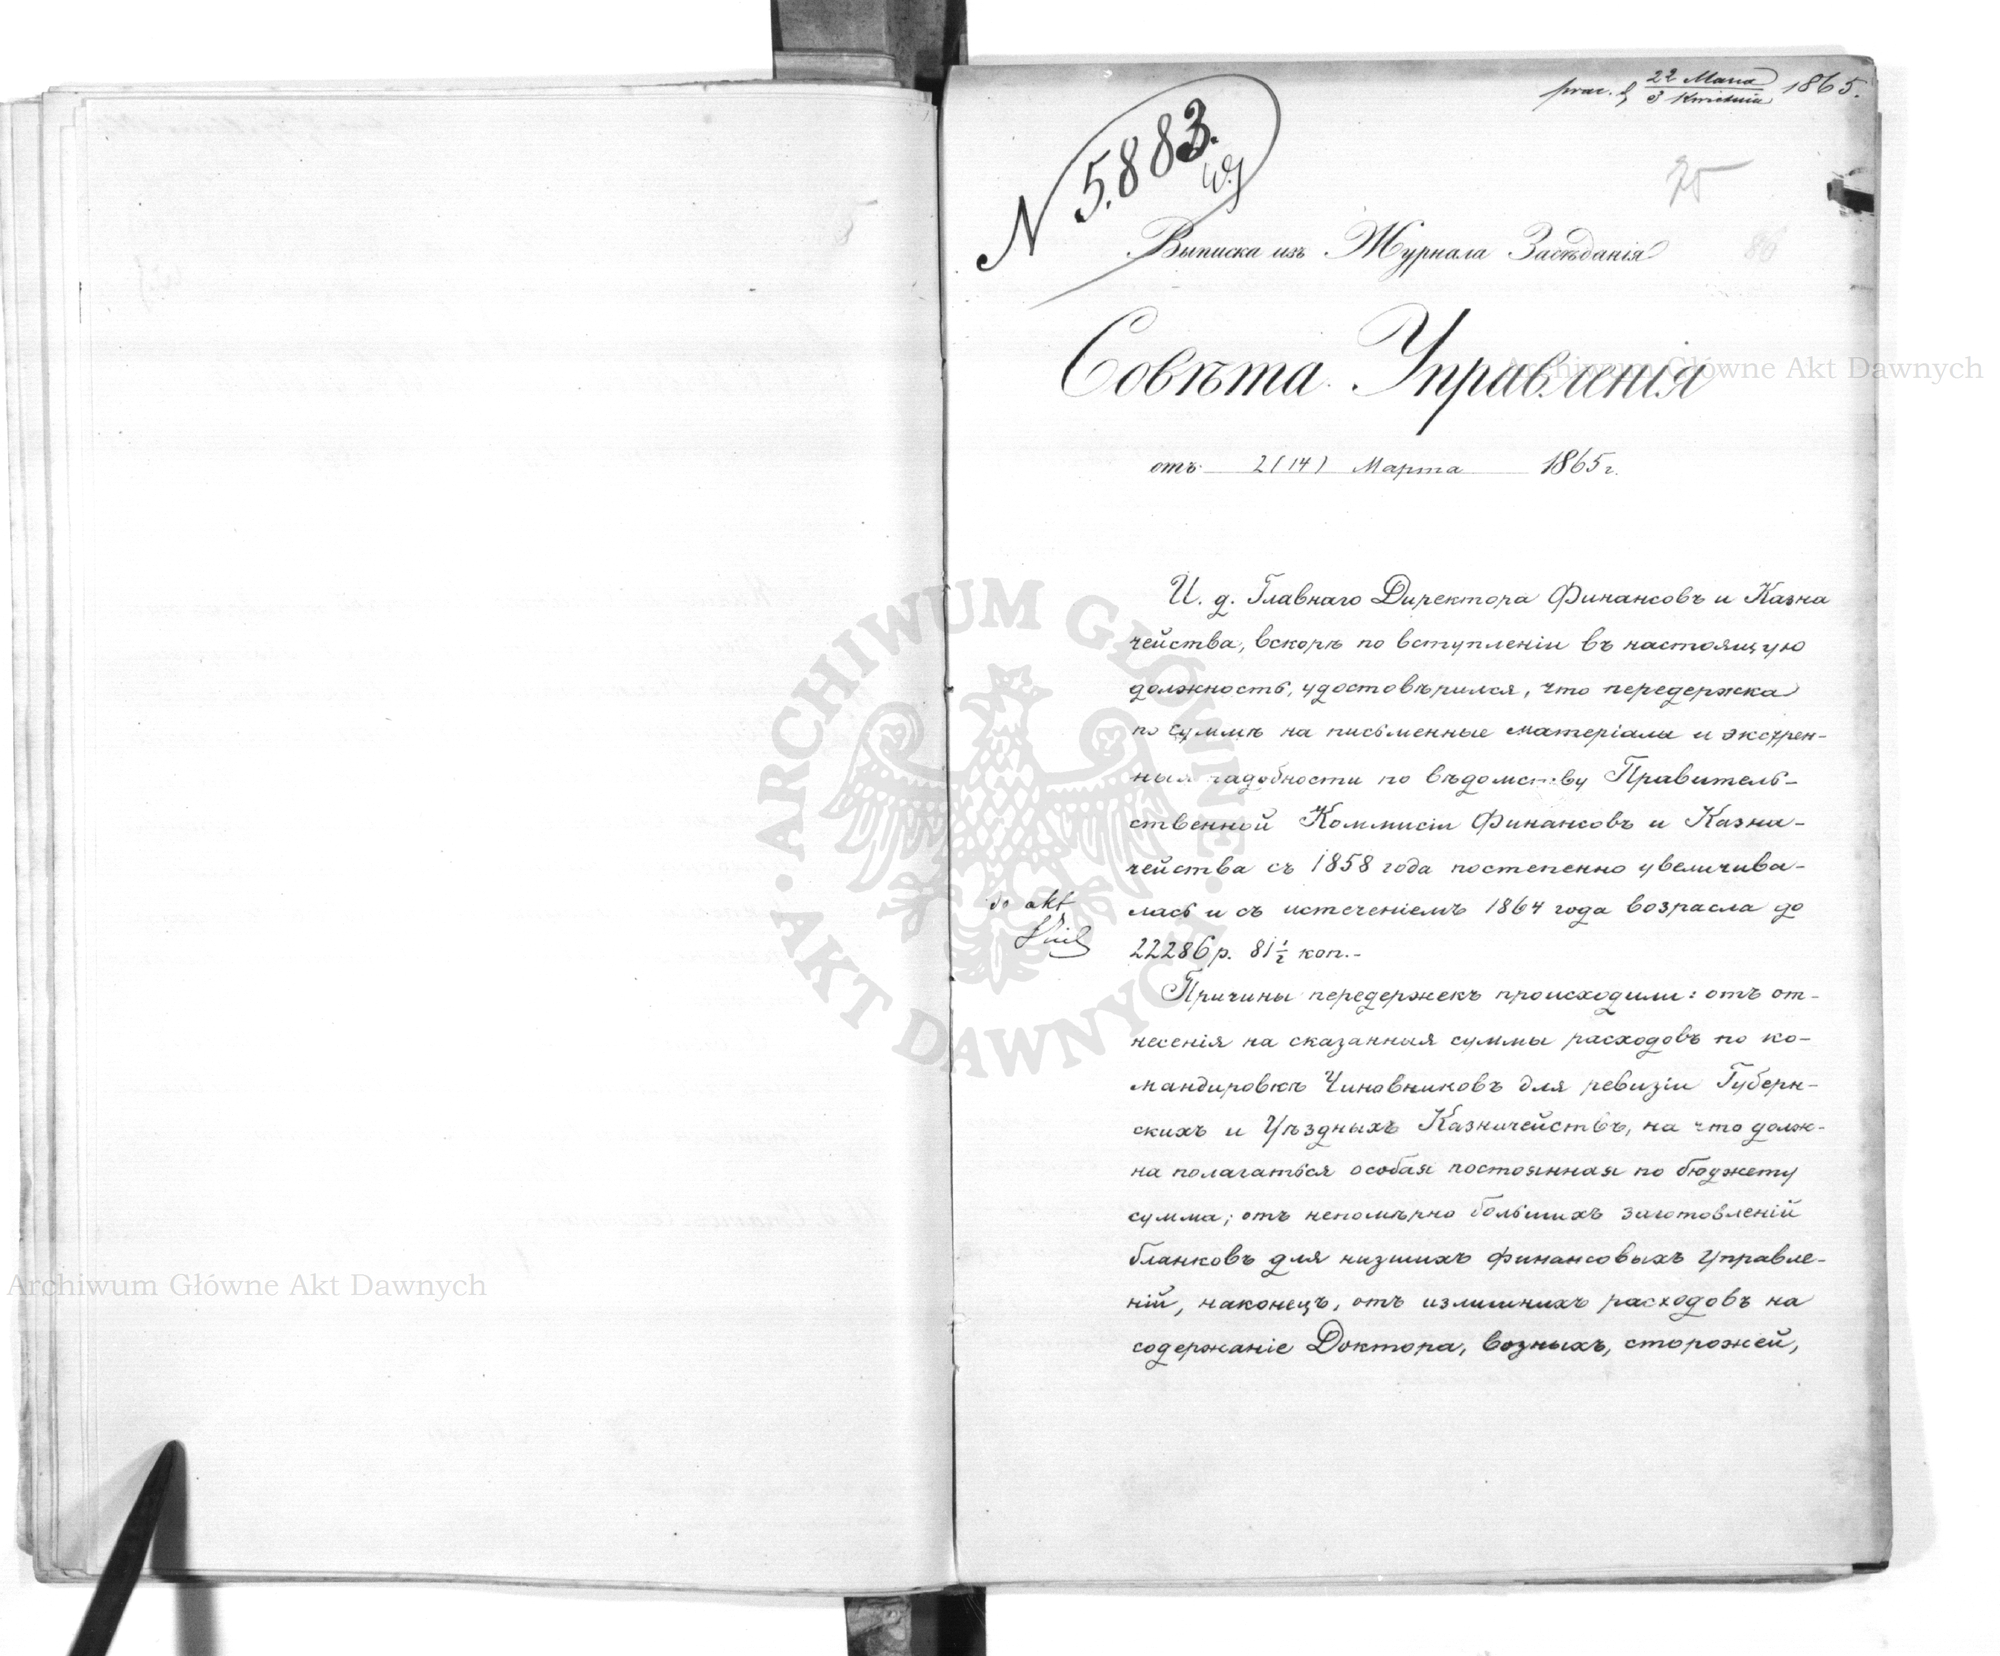 22 Marca
3 Kwietnia 1865.
N 5.883.
75
86
Выписка изъ Журнала Засѣданія
Совѣта Управленія
отъ 2 (14) Марта 1865 г.
И. д. Главнаго Директора Финансовъ и Казна
чейства, вскорѣ по вступленіи въ настоящую
должность, удостовѣрился, что передержка
по суммѣ на письменные матеріалы и экстрен-
ныя надобности по вѣдомству Правитель-
ственной Коммисіи Финансовъ и Казна-
чейства съ 1858 года постепенно увеличива-
лась и съ истеченіемъ 1864 года возрасла до
22286 р. 81 1/2 коп.-
do akt
Причины передержекъ происходили: отъ от-
несенія на сказанныя суммы расходовъ по ко-
мандировкѣ Чиновниковъ для ревизіи Губерн-
скихъ и Уѣздныхъ Казначействъ, на что долж-
на полагаться особая постоянная по бюджету
сумма; отъ непомѣрно большихъ заготовленій
бланковъ для низшихъ финансовыхъ Управле-
ній, наконецъ, отъ излишнихъ расходовъ на
содержаніе Доктора, возныхъ, сторожей,
Archiwum Główne Akt Dawnych
Archiwum Główne Akt Dawnych
ARCHIWUM GŁÓWNE
AKT DAWNYCH